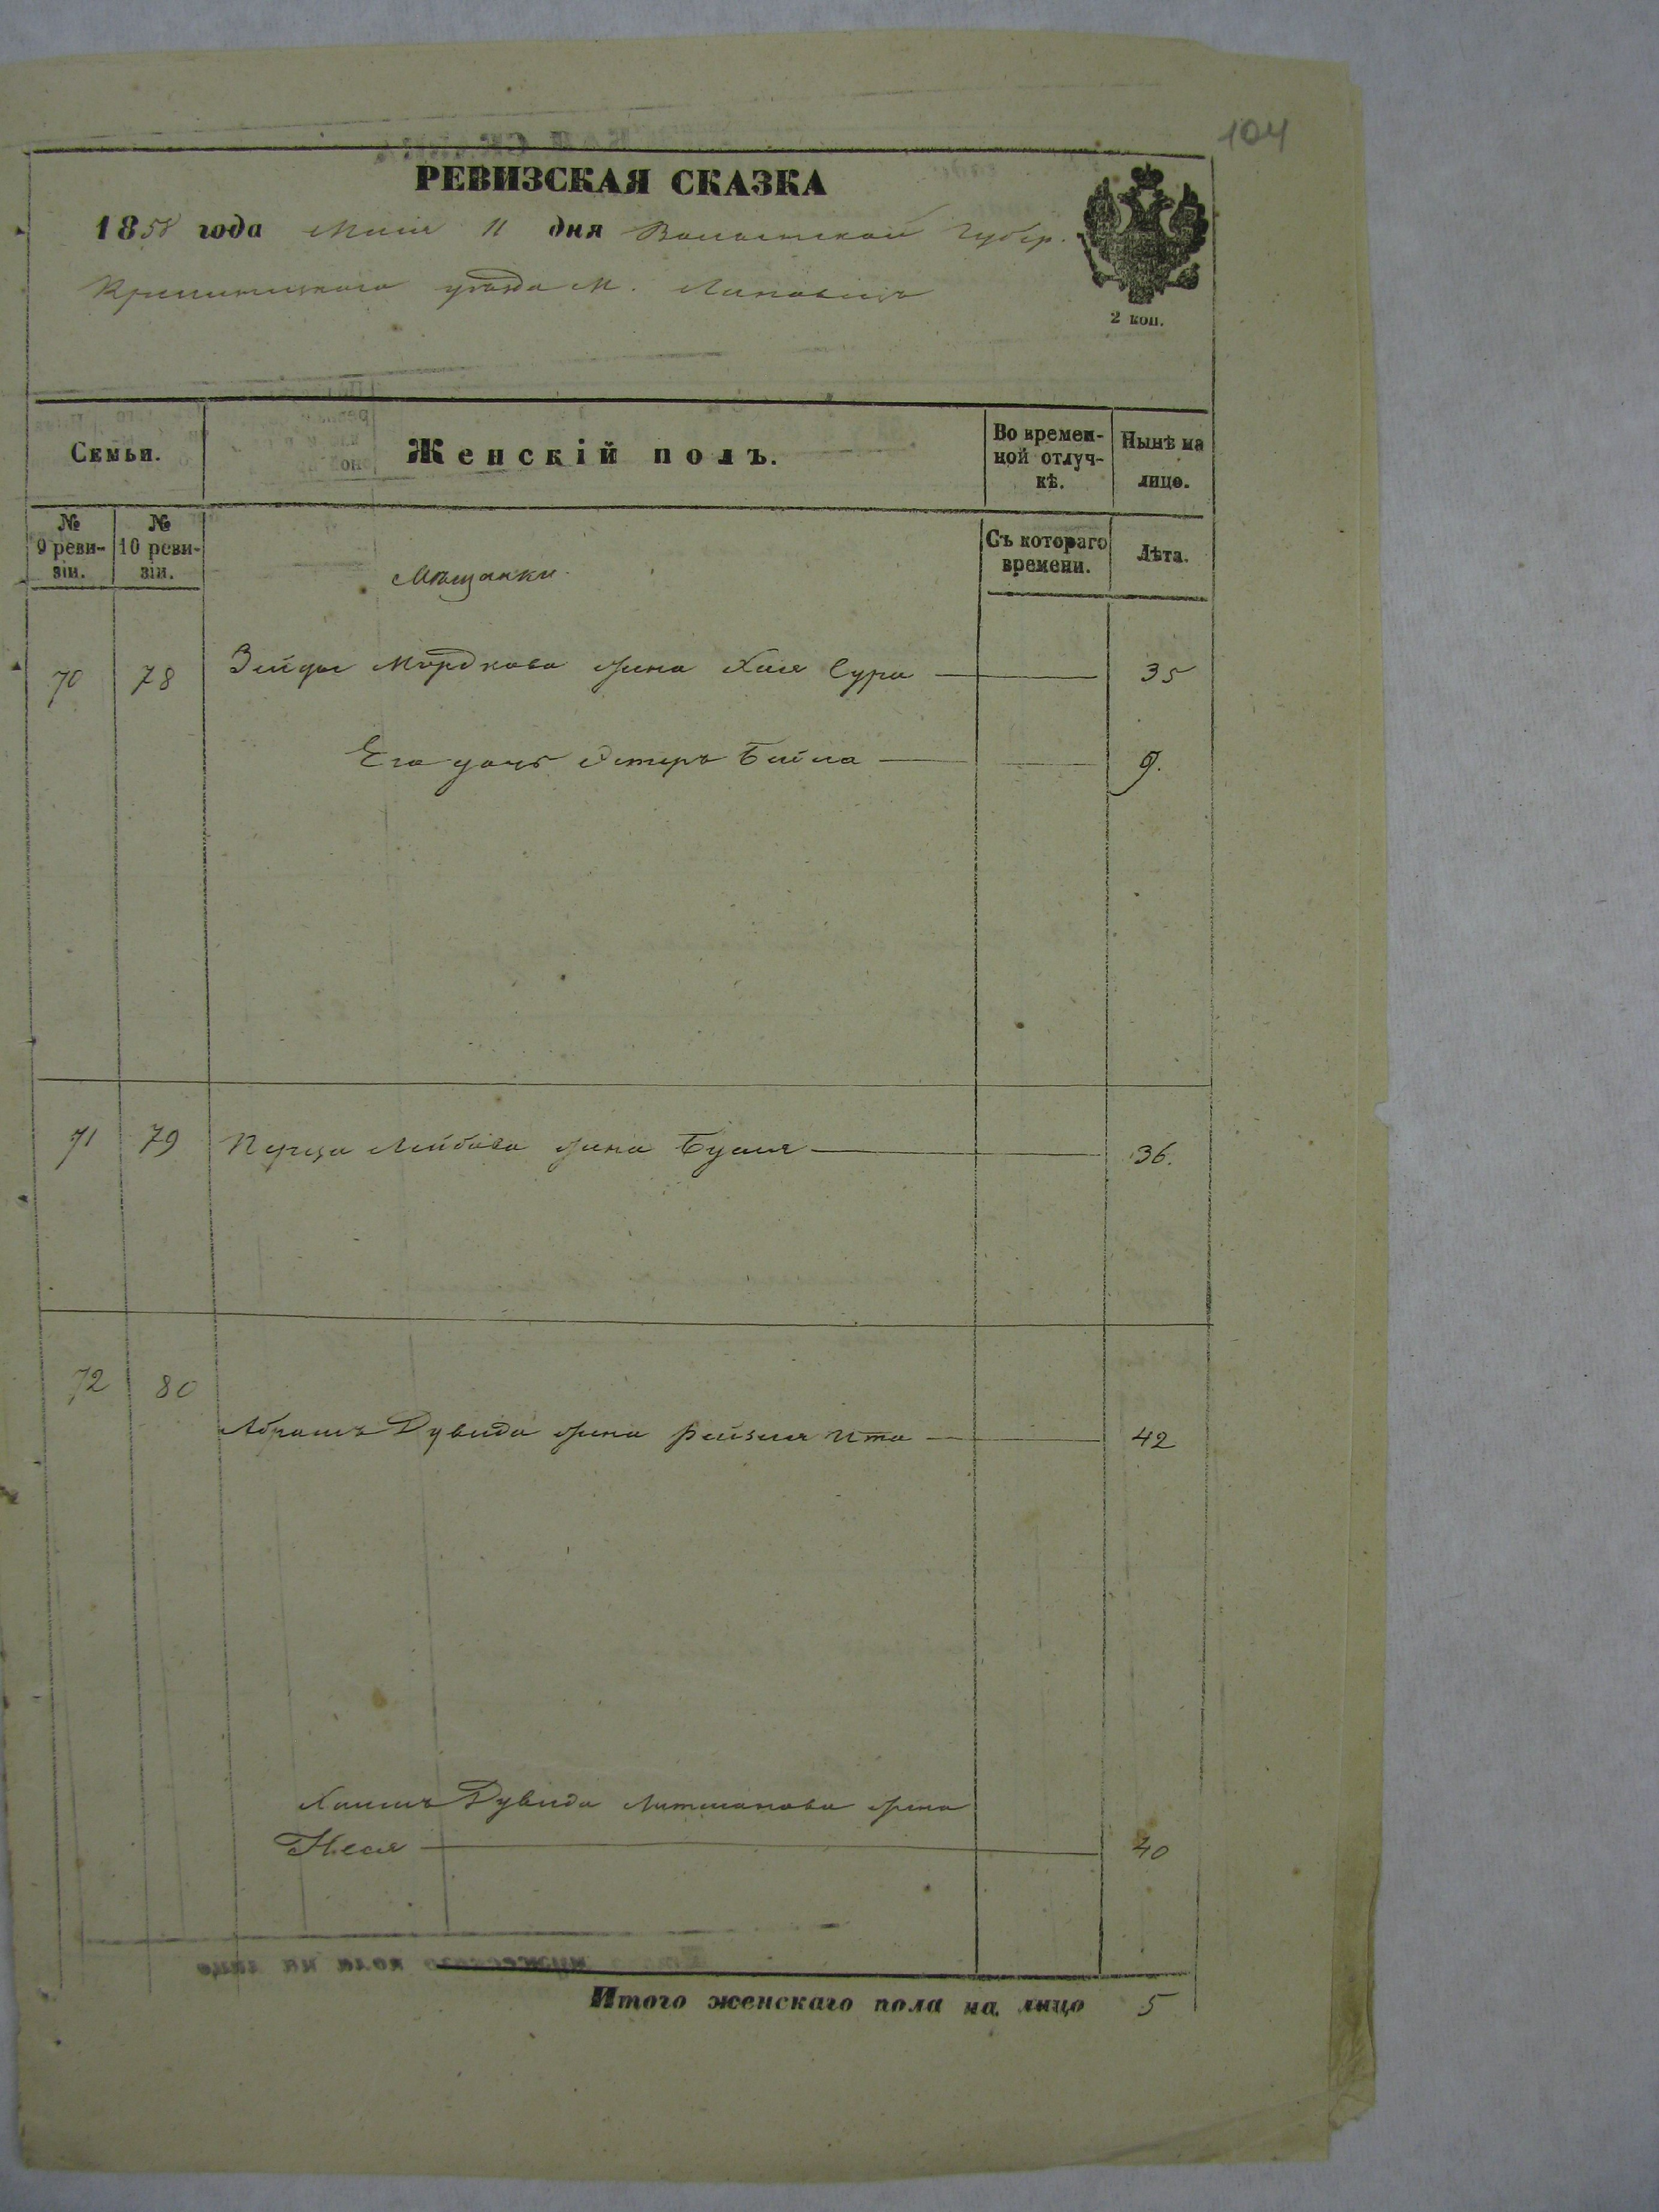 104
РЕВИЗСКАЯ СКАЗКА
1858 года Маія 11 дня Волынской Губер.
Кременецкаго уѣзда М.
2 коп.
Семьи.
Женскій полъ.
Во времен-
ной отлуч-
кѣ.
Нынѣ на
лицо.
№
9 реви-
зіи.
№
10 реви-
зіи.
Съ котораго
времени.
Лѣта.
Мѣщанки
70 78 Зейды Мордкова жена Хая Сура 35
Его дочь Эстеръ Бейла 9.
71 79 Перца Лейбова жена Бузя 36.
72 80
Абрамъ Дувида жена Рейзля Ита 42
Хаимъ Дувида Литманова жена
Неся 40
Итого женскаго пола на лицо 5